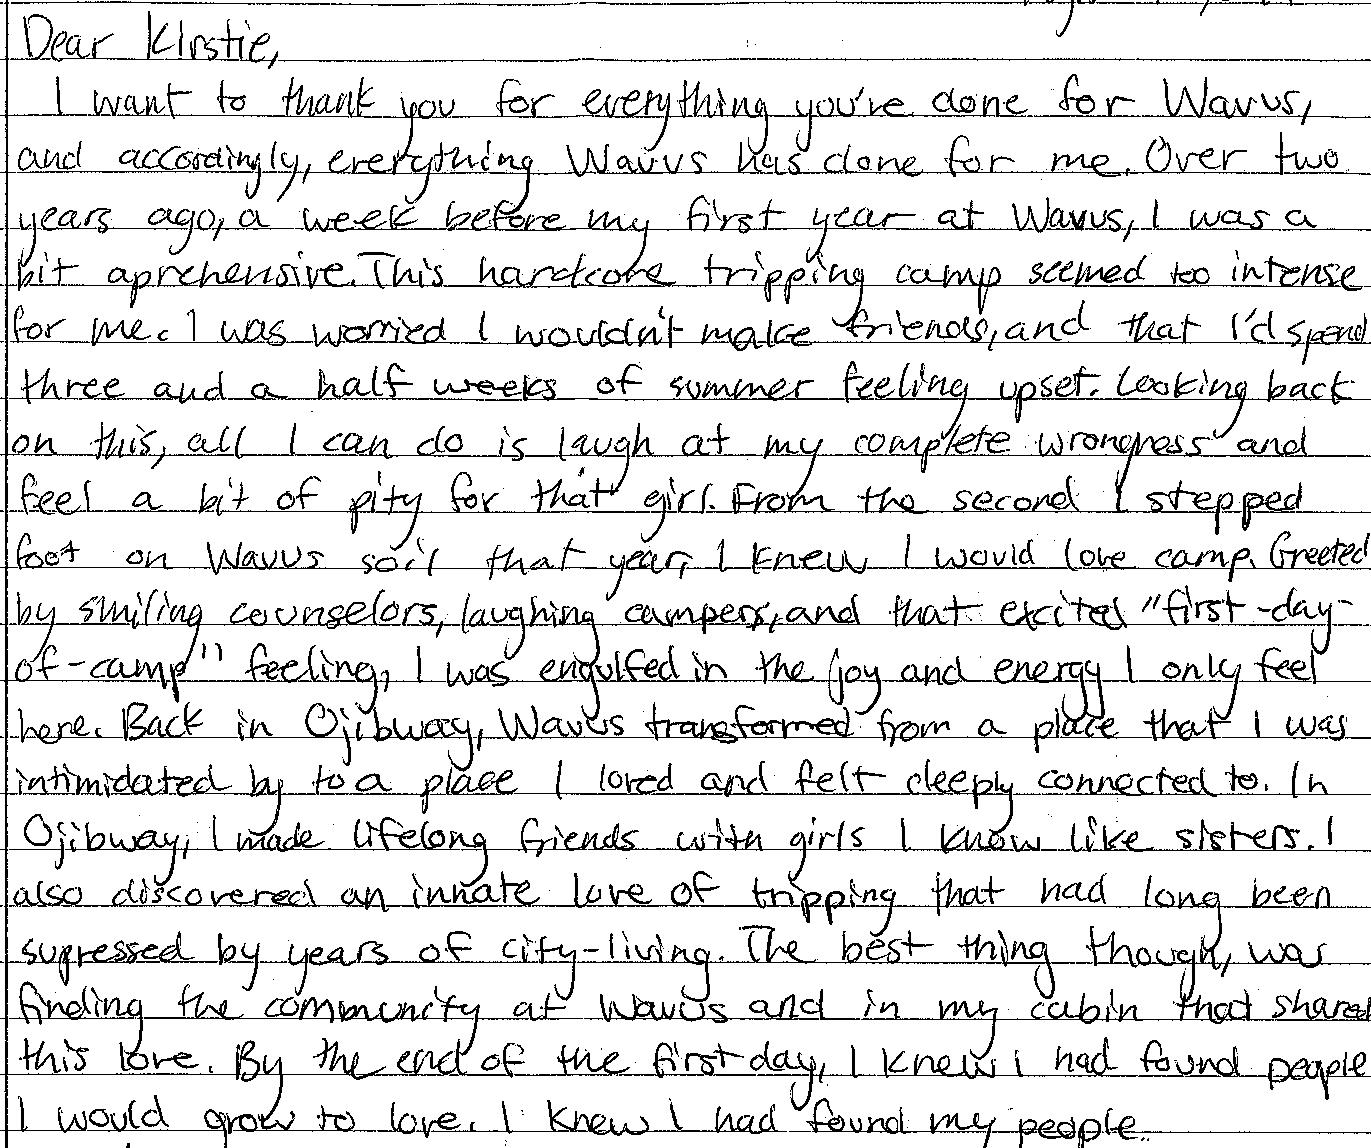 Dear Kirstie,
I want to thank you for everything you've done for Wavus,
and accordingly, everything Wavus has done for me. Over two
years ago, a week before my first year at Wavus, I was a
bit aprehensive. This hardcore tripping camp seemed too intense
for me. I was worried I wouldn't make friends, and that I'd spend
three and a half weeks of summer feeling upset. Looking back
on this, all I can do is laugh at my complete wrongness and
feel a bit of pity for that girl. From the second I stepped
foot on Wavus soil that year, I knew I would love camp. Greeted
by smiling counselors, laughing campers, and that excited "first-day-
of-camp" feeling, I was engulfed in the joy and energy I only feel
here. Back in Ojibway, Wavus transformed from a place that I was
intimidated by to a place I loved and felt deeply connected to. In
Ojibway, I made lifelong friends with girls I know like sisters. I
also discovered an innate love of tripping that had long been
supressed by years of city-living. The best thing though, was
finding the community at Wavus and in my cabin that shared
this love. By the end of the first day, I knew I had found people
I would grow to love. I knew I had found my people.